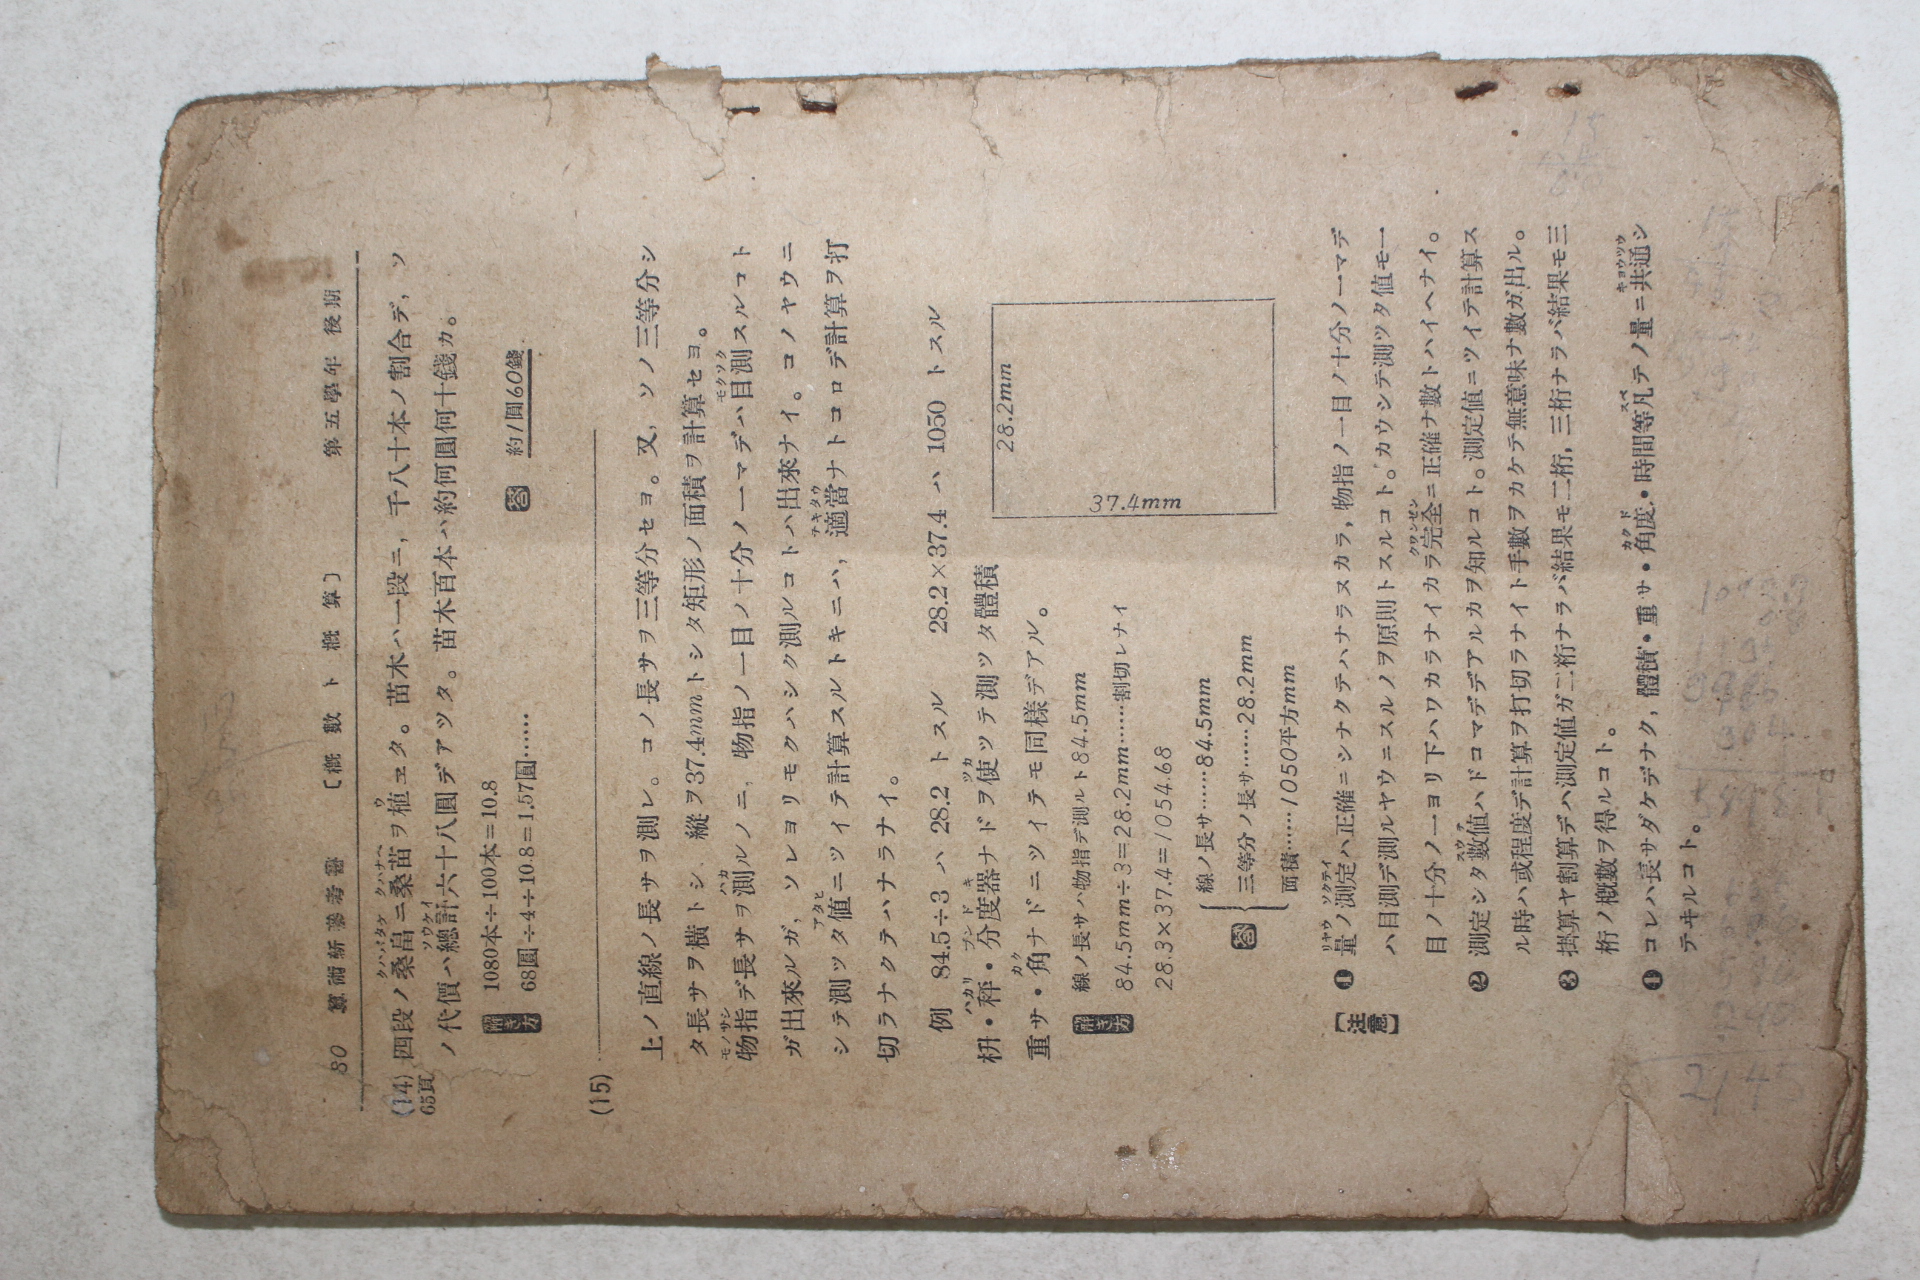 80 算術新參考書 〔概數ト概算〕 第五學年 後期
(14) 四段ノ桑畠ニ桑苗ヲ植ヱタ。苗木ハ一段ニ,千八十本ノ割合デ,ソ
65頁 ノ代價ハ總計六十八圓デアツタ。苗木百本ハ約何圓何十錢カ。
解き方 1080本÷100本=10.8
68圓÷4÷10.8=1.57圓…… 答 約1圓60錢
(15)
上ノ直線ノ長サヲ測レ。コノ長サヲ三等分セヨ。又,ソノ三等分シ
タ長サヲ横トシ、縱ヲ37.4mmトシタ矩形ノ面積ヲ計算セヨ。
物指デ長サヲ測ルノニ,物指ノ一目ノ十分ノ一マデハ目測スルコト
ガ出來ルガ,ソレヨリモクハシク測ルコトハ出來ナイ。コノヤウニ
シテ測ツタ値ニツイテ計算スルトキニハ,適當ナトコロデ計算ヲ打
切ラナクテハナラナイ。
例 84.5÷3 ハ 28.2 トスル 28.2×37.4 ハ 1050 トスル
枡・秤・分度器ナドヲ使ツテ測ツタ體積
重サ・角ナドニツイテモ同樣デアル。
28.2mm
37.4mm
解き方 線ノ長サハ物指デ測ルト84.5mm
84.5mm÷3=28.2mm……割切レナイ
28.3×37.4=1054.68
答 線ノ長サ……84.5mm
三等分ノ長サ……28.2mm
面積……1050平方mm
【注意】 ❶ 量ノ測定ハ正確ニシナクテハナラヌカラ,物指ノ一目ノ十分ノ一マデ
ハ目測デ測ルヤウニスルノヲ原則トスルコト。カウシテ測ツタ値モ一
目ノ十分ノ一ヨリ下ハワカラナイカラ完全ニ正確ナ數トハイヘナイ。
❷ 測定シタ數値ハドコマデデアルカヲ知ルコト。測定値ニツイテ計算ス
ル時ハ或程度デ計算ヲ打切ラナイト手數ヲカケテ無意味ナ數ガ出ル。
❸ 掛算ヤ割算デハ測定値ガ二桁ナラバ結果モ二桁,三桁ナラバ結果モ三
桁ノ概數ヲ得ルコト。
❹ コレハ長サダケデナク,體積・重サ・角度・時間等凡テノ量ニ共通シ
テキルコト。
2145